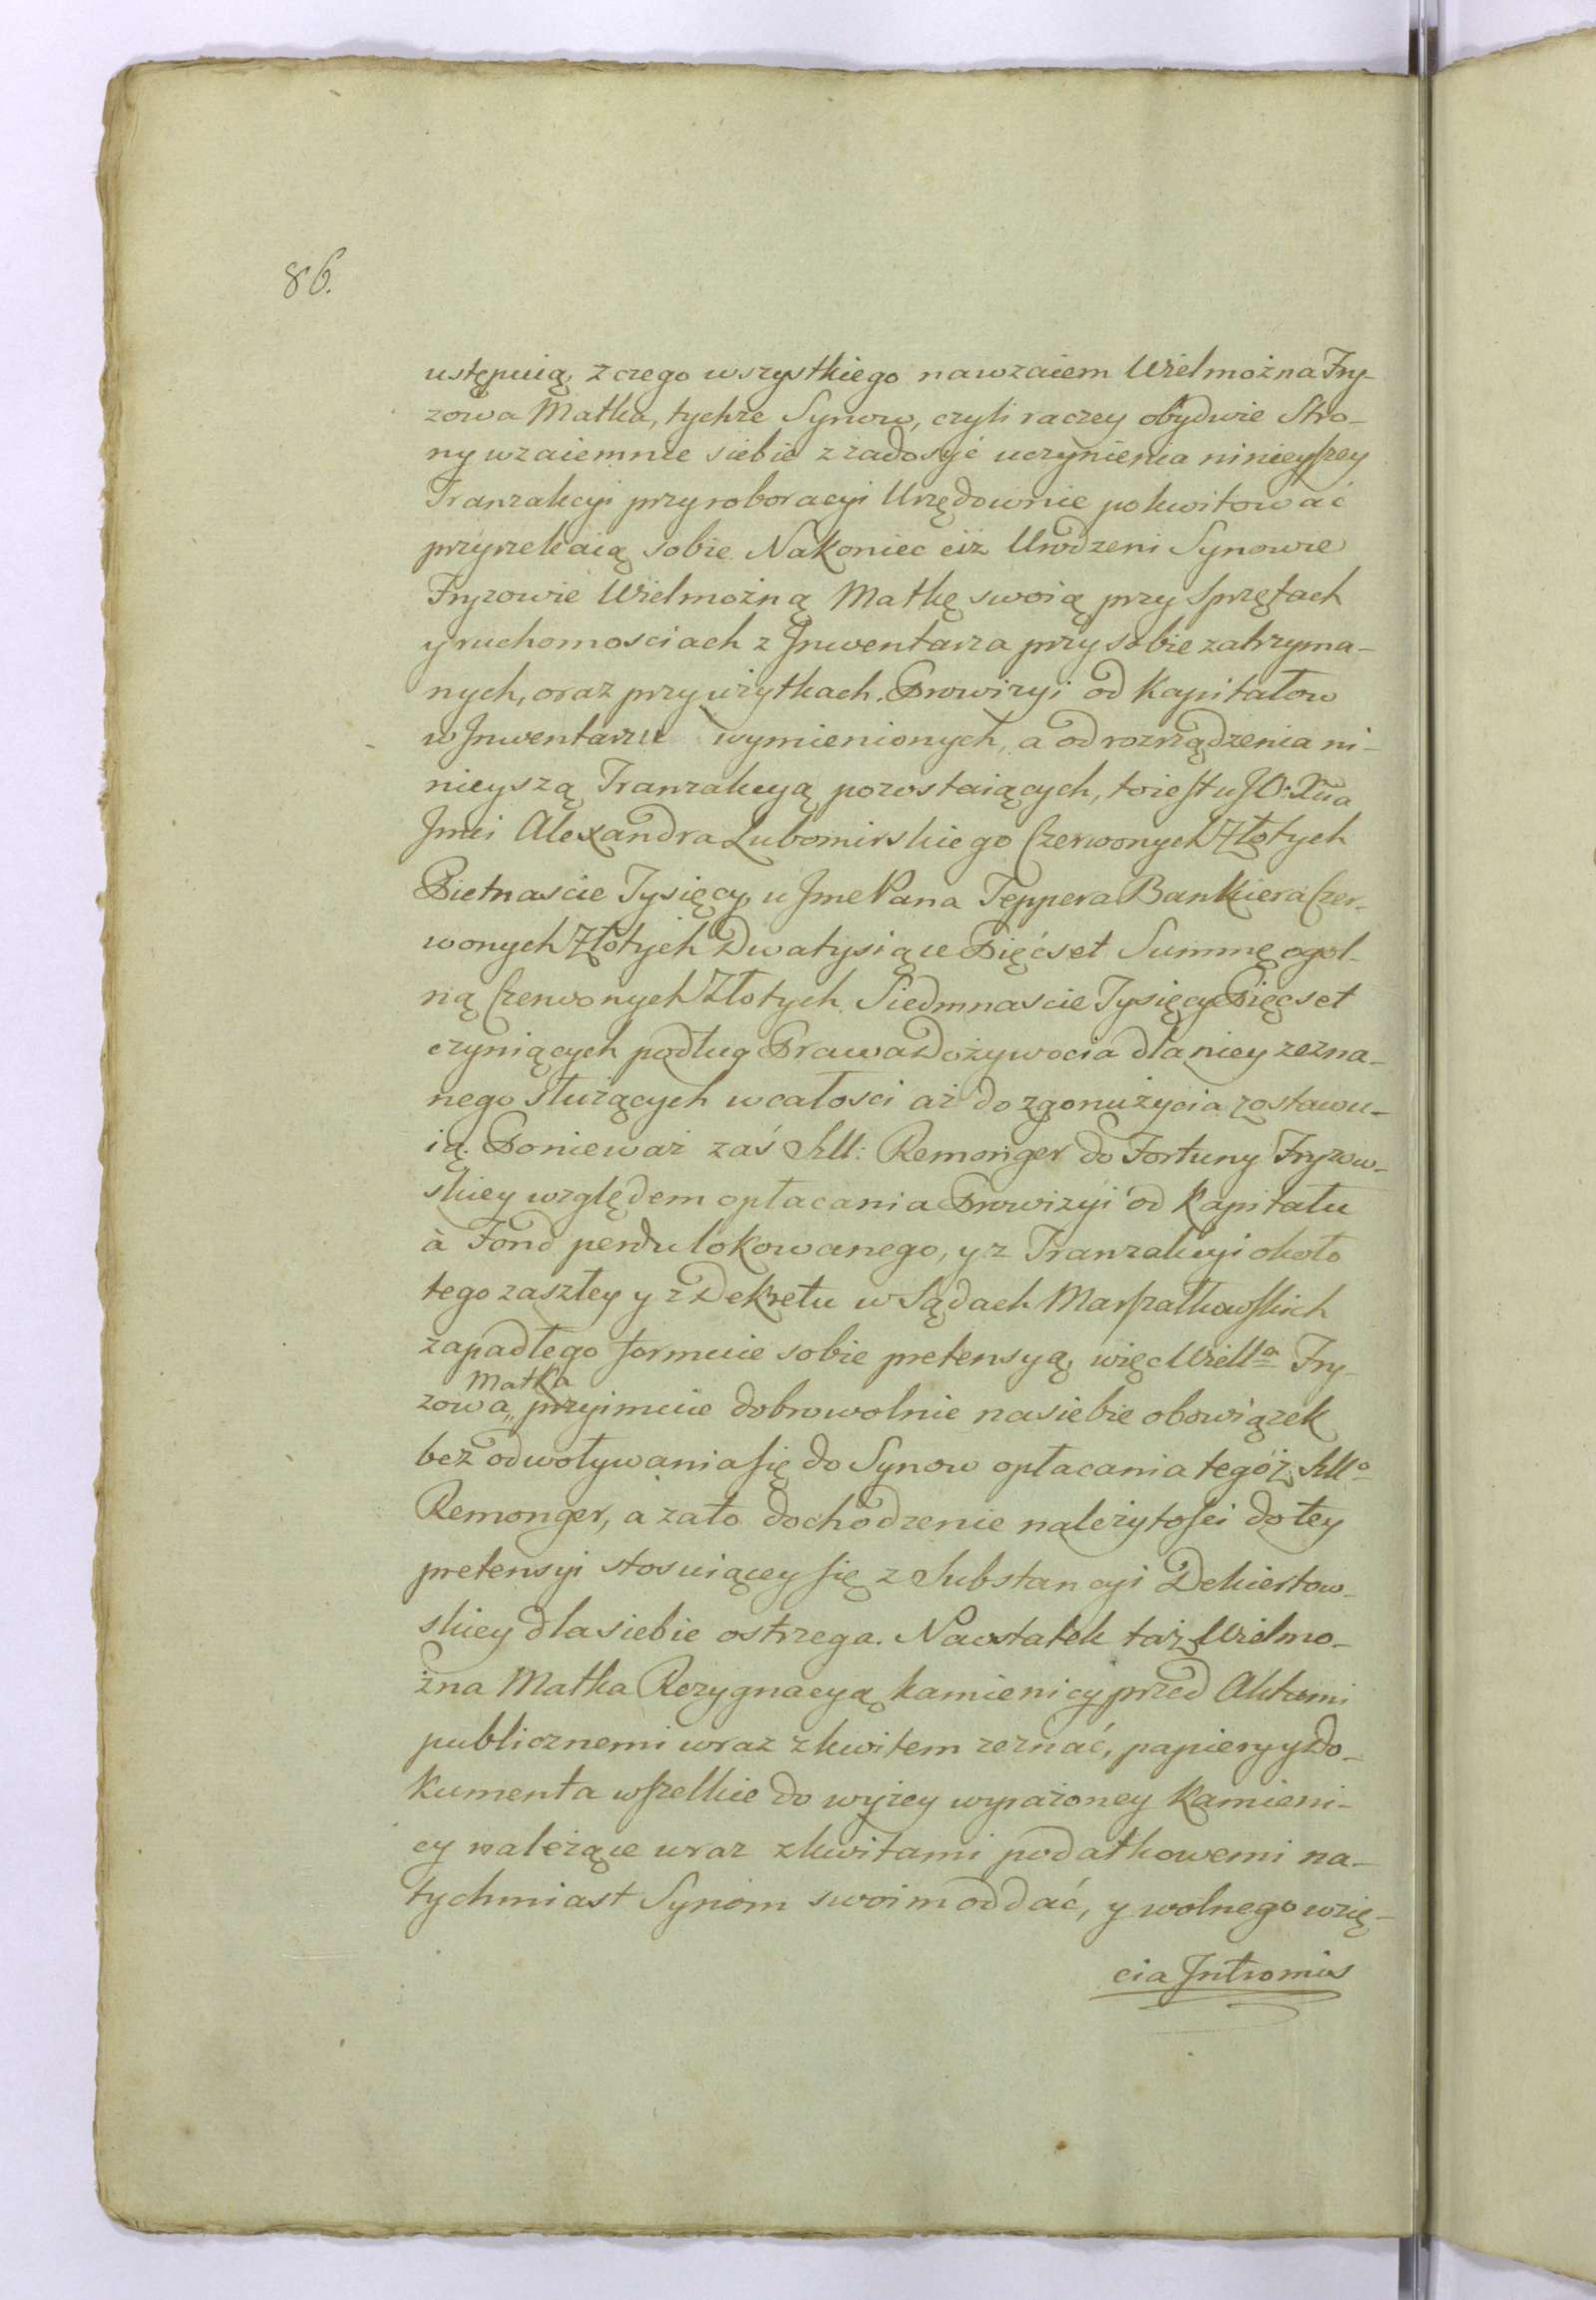 86.
ustępuią, z czego wszystkiego nawzaiem Wielmożna Fry-
zowa Matka, tychże Synow, czyli raczey obydwie Stro-
ny wzaiemnie siebie z zadosyć uczynienia ninieyszey
Tranzakcyi przy roboracyi Urzędownie pokwitować
przyrzekaią sobie. Nakoniec ciż Urodzeni Synowie
Fryzowie Wielmożną Matkę swoią przy Sprzętach
y ruchomosciach z Jnwentarza przy sobie zatrzyma-
nych, oraz przy użytkach Prowizyi od Kapitałow
w Jnwentarzu wymienionych, a od rozrządzenia ni-
nieyszą Tranzakcyą pozostaiących, to iest u JO: Xcia
Jmci Alexandra Lubomirskiego Czerwonych Złotych
Pietnascie Tysięcy, u Jme Pana Teppera Bankiera Czer-
wonych Złotych Dwa tysiące Pięćset Summę ogol-
ną Czerwonych Złotych Siedmnascie Tysięcy Pięcset
czyniących podług Prawa Dożywocia dla niey zezna-
nego służących w całosci aż do zgonu życia zostawu-
ią. Ponieważ zaś Mll: Remonger do Fortuny Fryzow-
skiey względem opłacania Prowizyi od Kapitału
à Fond perdu lokowanego, y z Tranzakcyi około
tego zaszłey y z Dekretu w Sądach Marszałkowskich
zapadłego formuie sobie pretensyą, więc Wiellª Fry-
Matka
zowa „ przyimuie dobrowolnie na siebie obowiązek
bez odwoływania się do Synow opłacania tegóż Mllº
Remonger, a zato dochodzenie należytosci do tey
pretensyi stosuiącey się z Substancyi Dekiertow-
skiey dla siebie ostrzega. Naostatek taż Wielmo-
żna Matka Rezygnacyą kamienicy przed Aktami
publicznemi wraz z kwitem zeznać, papiery y Do-
kumenta wszelkie do wyżey wyrażoney Kamieni-
cy należące wraz z kwitami podatkowemi na-
tychmiast Synom swoim oddać, y wolnego wzię-
cia Jntromis